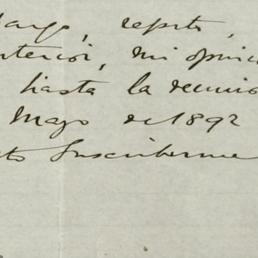 largo, repito,
nterior, mi opinio
hasta la reunio
Mayo de 1892
to Suscribirme